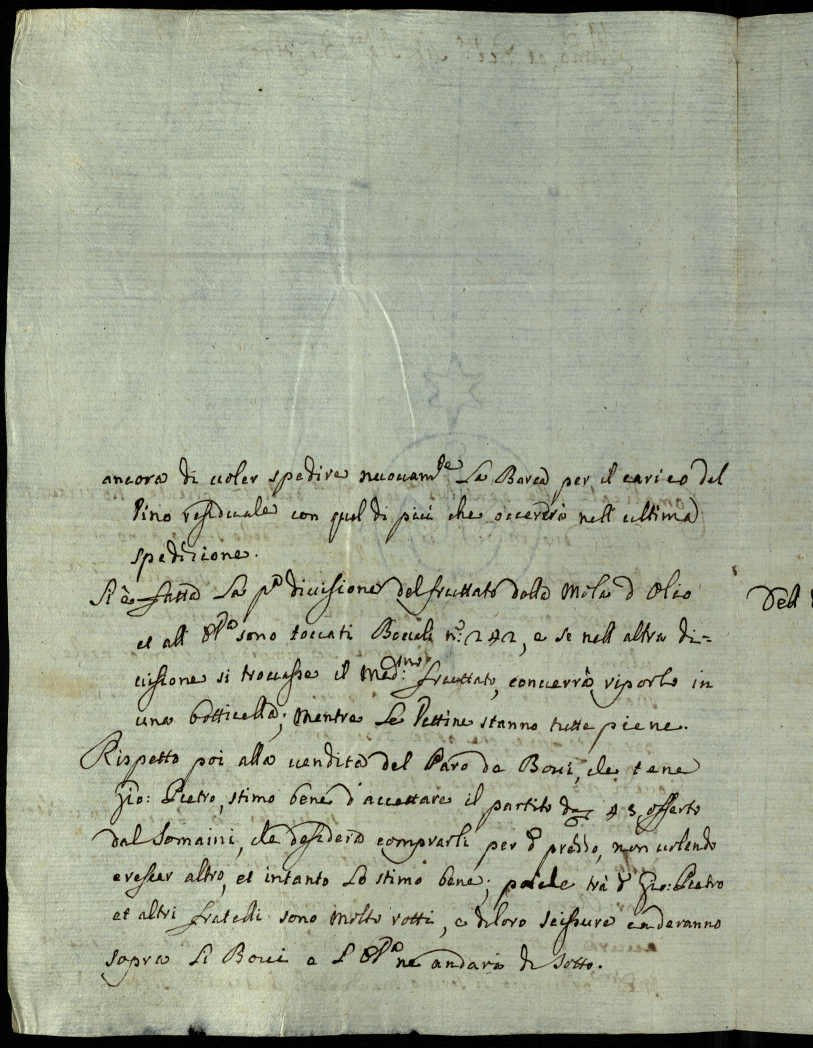 ancora di voler spedire nuouam.te La Barca per il carico del
Vino residuale con quel di più che occorerà nell'ultima
spedizione.
Si è fatta La p.a diuisione del fruttato della Mola d'Olio
et all' Op.a sono toccati Boccali n.o 242, e se nell'altra di=
uisione si trouasse il Med.mo fruttato, conuerrà riporlo in
una botticella; mentre Le Pettine stanno tutte piene.
Rispetto poi alla uendita del Paro de Boui, che tene
Gio: Pietro, stimo bene d'accettare il partito di 43 offerto
dal Somaini, che desidera comprarli per d.o prezzo, non uolendo
crescer altro, et intanto Lo stimo bene; poiche trà d.o Gio: Pietro
et altri fratelli sono molto rotti, e di loro scissure caderanno
sopra Li Boui e L'Op.a ne andarà di sotto.
Dell